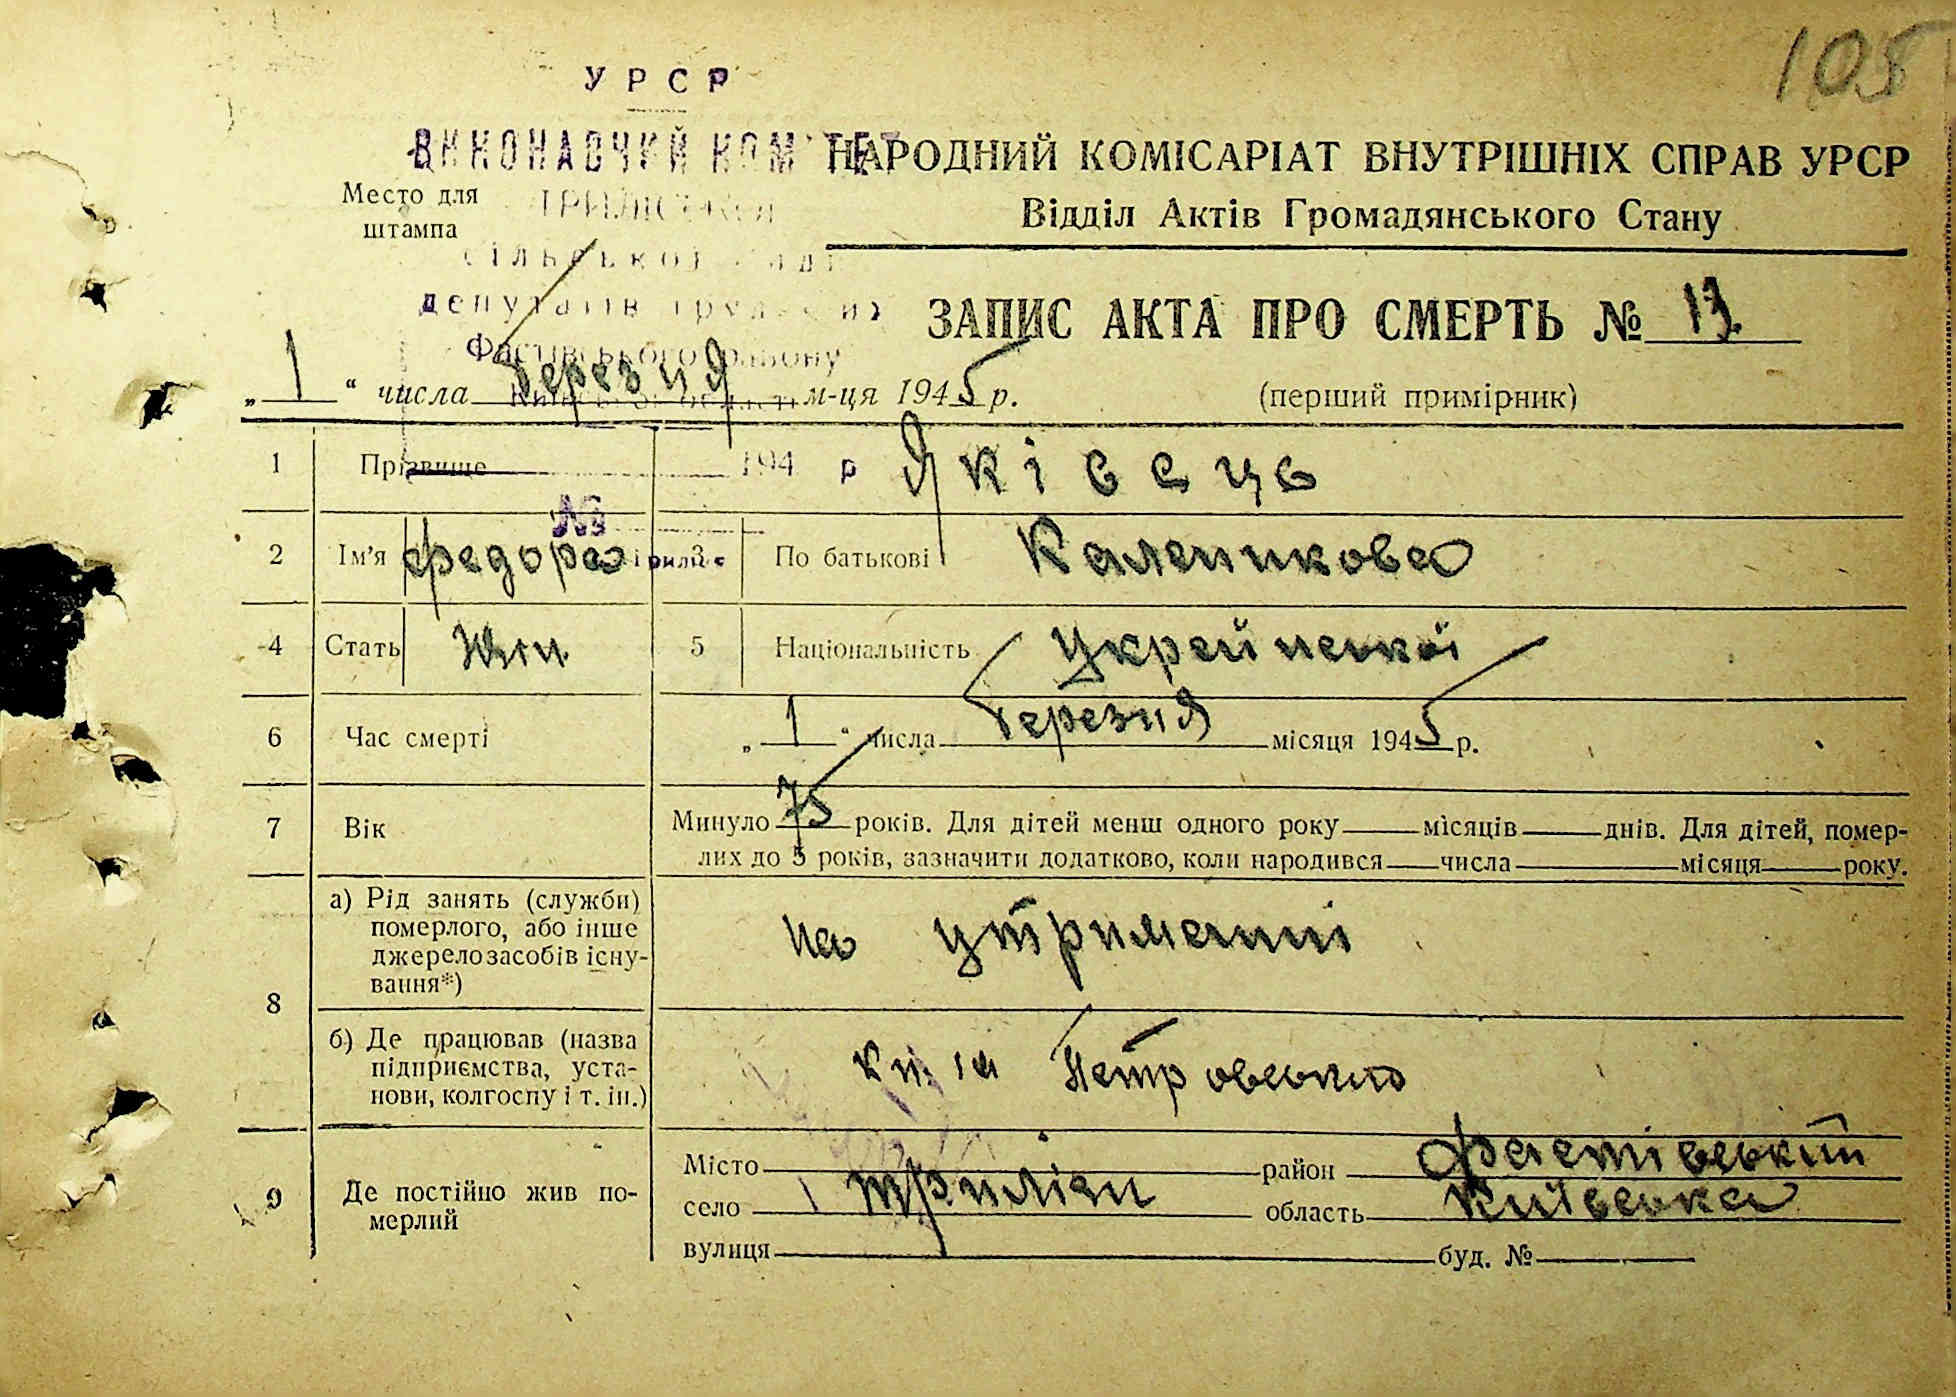 105
УРСР
ВИКОНАВЧИЙ КОМІТЕТ
НАРОДНИЙ КОМІСАРІАТ ВНУТРІШНІХ СПРАВ УРСР
Место для штампа
Відділ Актів Громадянського Стану
сільської ради
депутатів трудящих
Фастівського району
Київської області
ЗАПИС АКТА ПРО СМЕРТЬ № 17
„1“ числа березня м-ця 1945 р.
(перший примірник)
1 Прізвище 194 р Яківець
№
2 Ім'я Федора 3 По батькові Каленикова
4 Стать жін 5 Національність
6 Час смерті „1“ числа березня місяця 1945 р.
7 Вік Минуло 75 років. Для дітей менш одного року місяців днів. Для дітей, помер-
лих до 5 років, зазначити додатково, коли народився числа місяця року.
8 а) Рід занять (служби)
померлого, або інше
джерело засобів існу-
вання*)
на утриманні
б) Де працював (назва
підприємства, уста-
нови, колгоспу і т. ін.)
Петровського
9 Де постійно жив по-
мерлий
Місто район Фастівський
село Триліси область Київська
вулиця буд. №